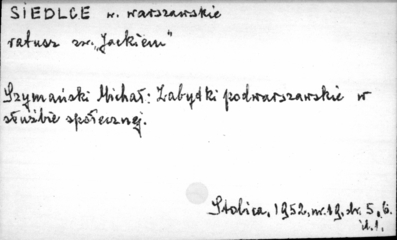 SIEDLCE w. warszawskie
ratusz zw. „Jackiem”
Szymański Michał: Zabytki podwarszawskie w
służbie społecznej.
Stolica, 1952, nr. 19, str. 5, 6.
il. 1.